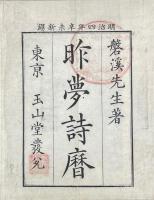 明治四年辛未新鐫
磐溪先生著
昨夢詩暦
東京 玉山堂發兌